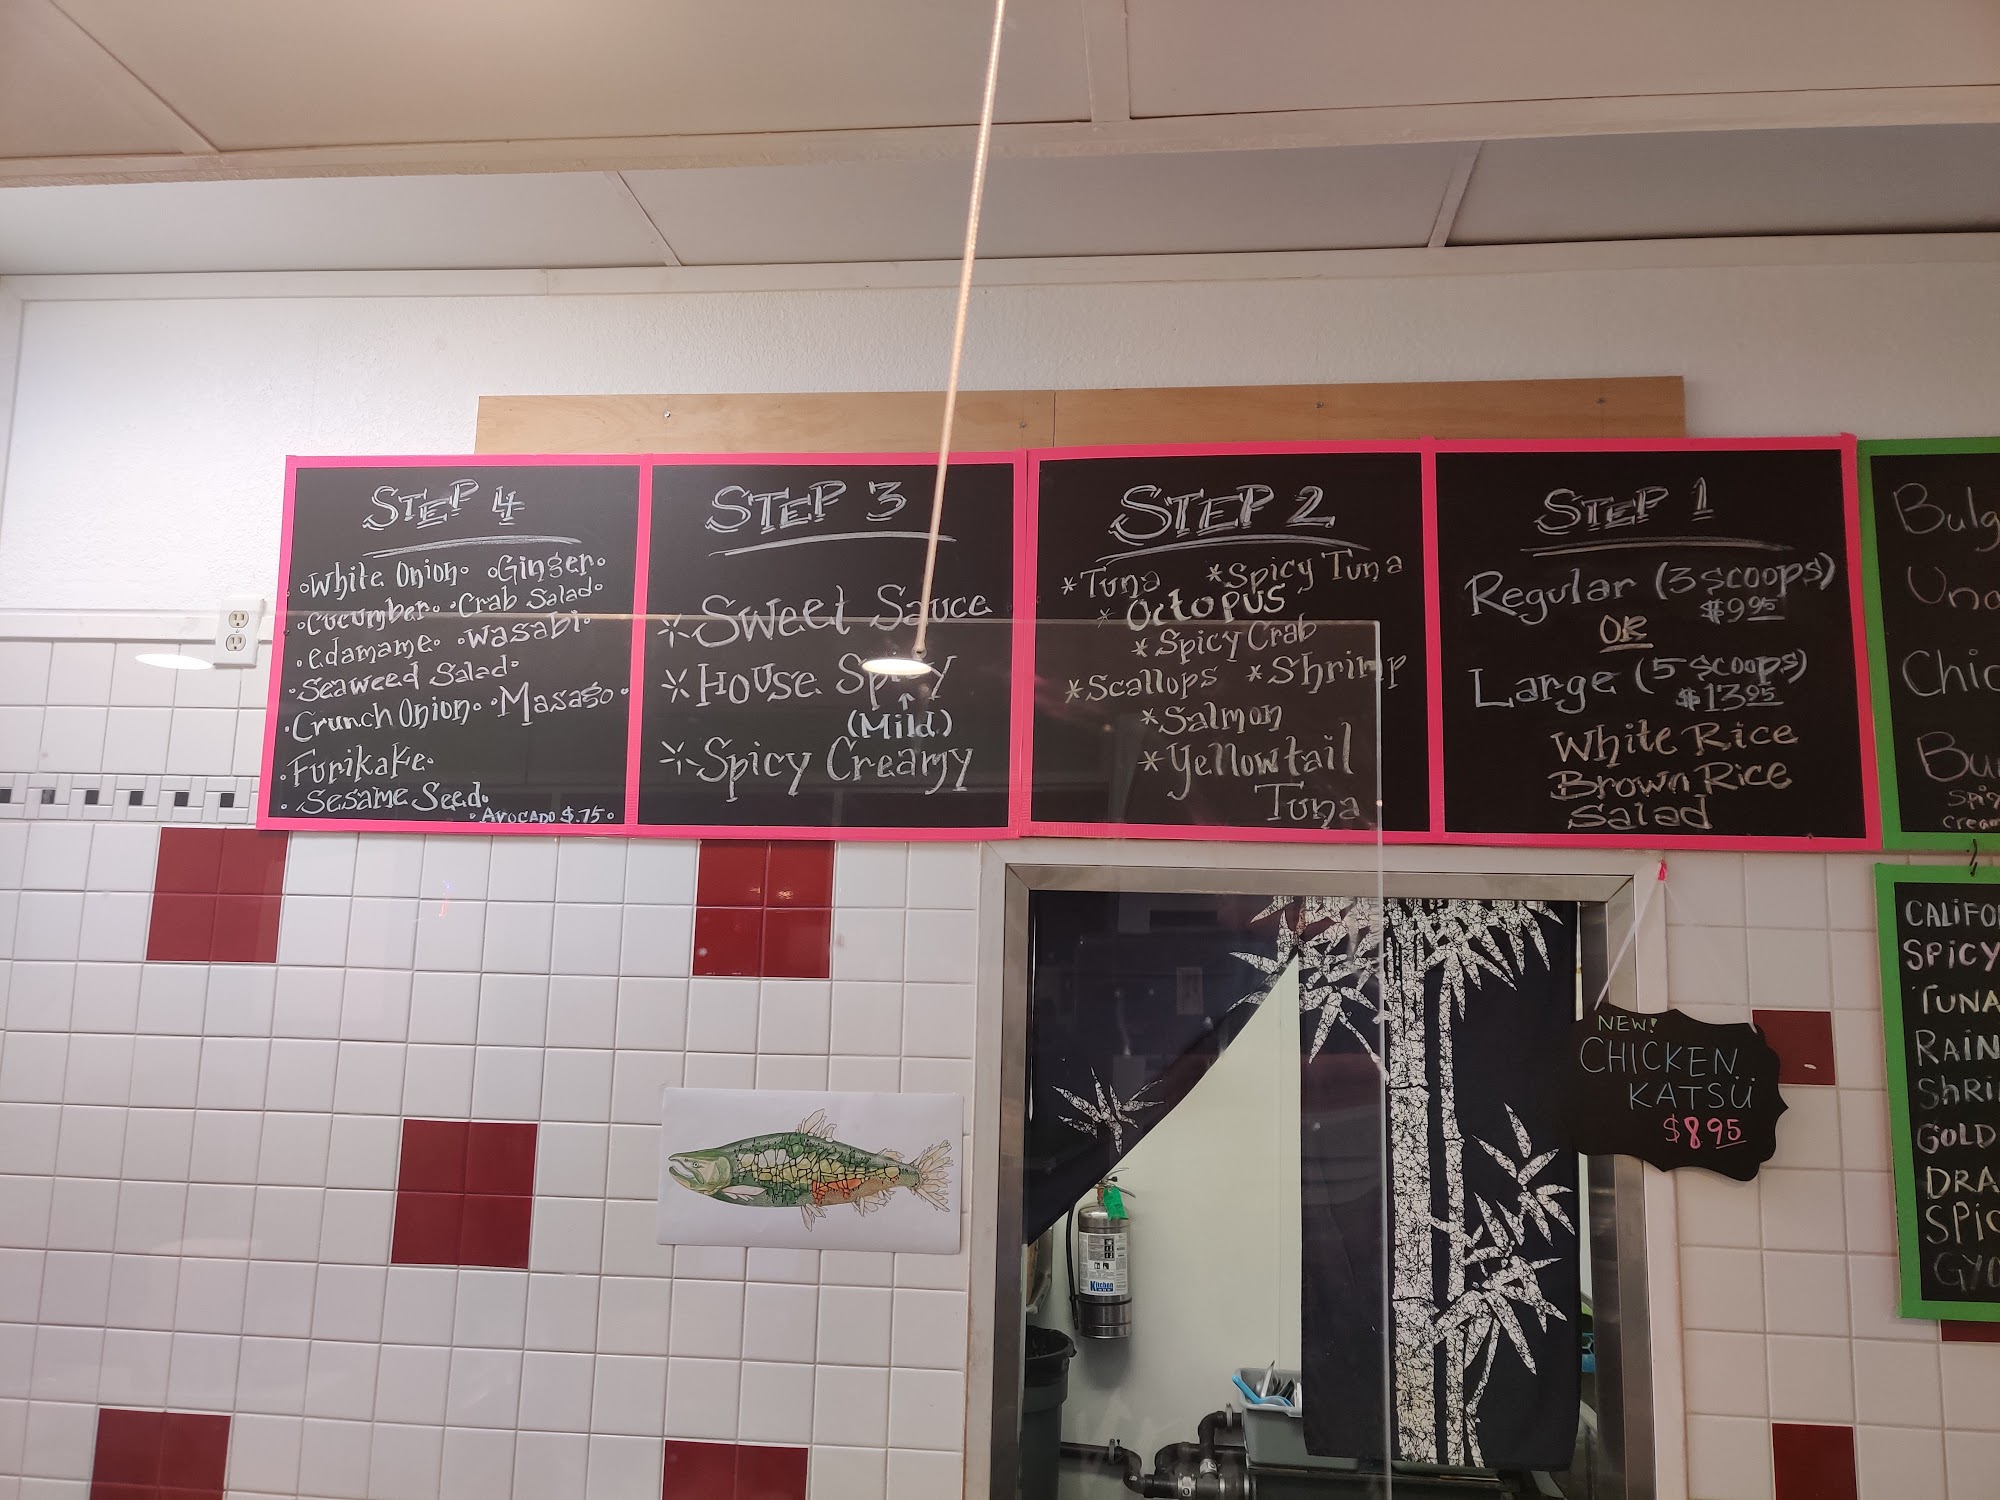 STEP 4
◦White Onion◦ ◦Ginger◦
◦Cucumber◦ ◦Crab Salad◦
◦edamame◦ ◦wasabi◦
◦Seaweed Salad◦
◦Crunch Onion◦ ◦Masago◦
◦Furikake◦
◦Sesame Seed◦
◦AVOCADO $.75◦
STEP 3
*Sweet Sauce
*House Spicy
(Mild)
*Spicy Creamy
STEP 2
*Tuna *Spicy Tuna
*Octopus
*Spicy Crab
*Scallops *Shrimp
*Salmon
*Yellowtail
Tuna
STEP 1
Regular (3 scoops)
$9.95
OR
Large (5 scoops)
$13.95
White Rice
Brown Rice
Salad
NEW!
CHICKEN
KATSU
$8.95
SPICY
TUNA
Kitchen